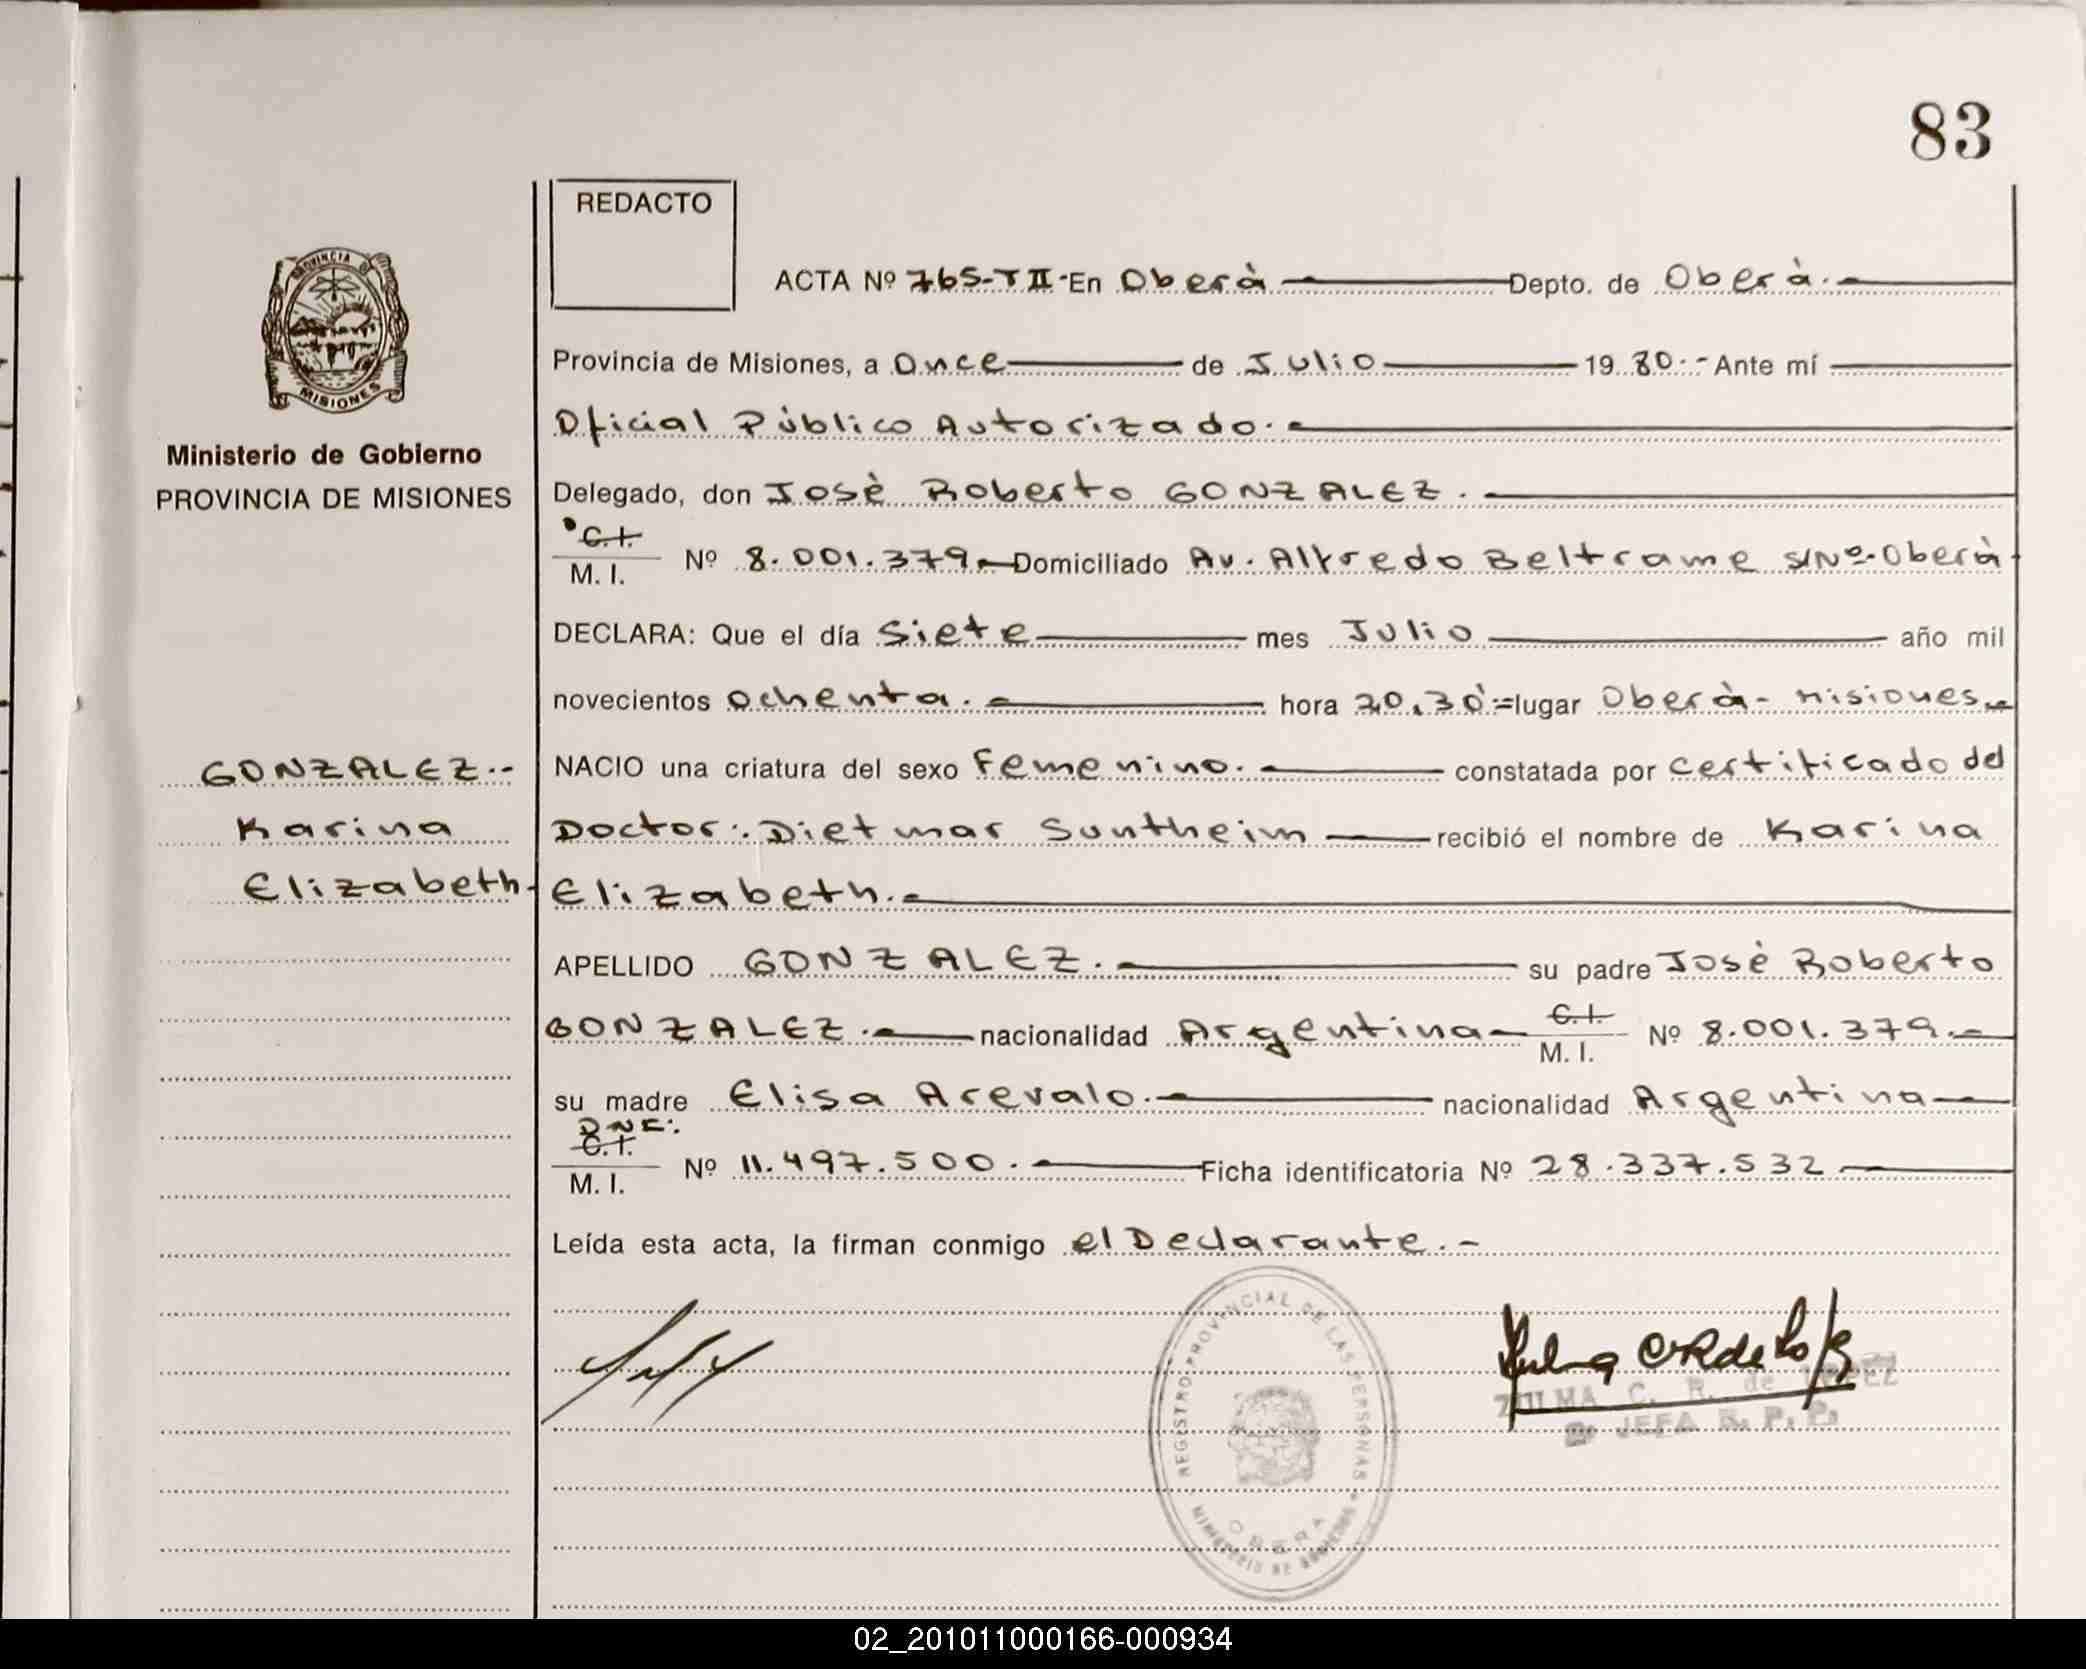 83
REDACTO
PROVINCIA D
MISIONES
Ministerio de Gobierno
PROVINCIA DE MISIONES
GONZALEZ.-
Karina
Elizabeth-
ACTA Nº 765-TII-En Oberà Depto. de Oberà.-
Provincia de Misiones, a Once de Julio 1980.- Ante mí
Oficial Pùblico Autorizado.-
Delegado, don Josè Roberto GONZALEZ.
C.I.
M. I. Nº 8.001.379.- Domiciliado Av. Alfredo Beltrame S/Nº-Oberà-
DECLARA: Que el día Siete mes Julio año mil
novecientos ochenta.- hora 20,30'=lugar Oberà- Misiones.-
NACIO una criatura del sexo Femenino.- constatada por certificado del
Doctor: Dietmar Suntheim recibió el nombre de Karina
Elizabeth.-
APELLIDO GONZALEZ.- su padre Josè Roberto
GONZALEZ.- nacionalidad Argentina- C.I. M. I. Nº 8.001.379.-
su madre Elisa Arevalo.- nacionalidad Argentina-
DNI:
C.I.
M. I. Nº 11.497.500.- Ficha identificatoria Nº 28.337.532-
Leída esta acta, la firman conmigo el Declarante.-
REGISTRO PROVINCIAL DE LAS PERSONAS
OBERA
MINISTERIO DE GOBIERNO
ZULMA C. R. de LOPEZ
JEFA R. P. P.
02_201011000166-000934